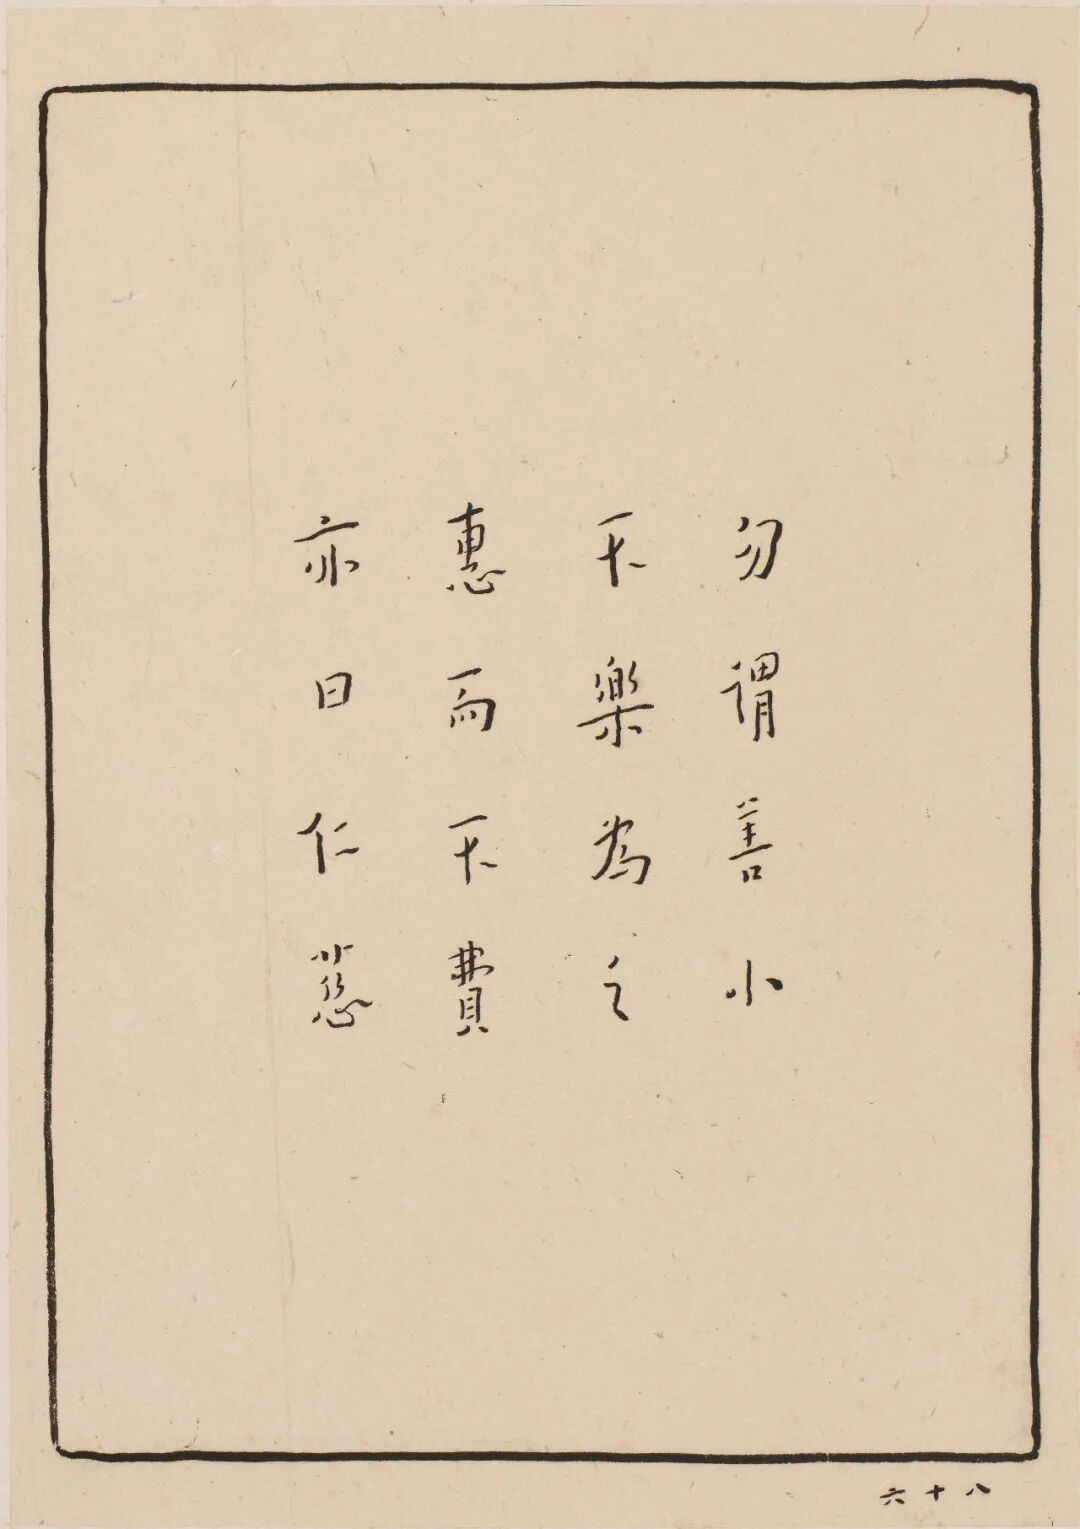 勿謂善小
不樂為之
惠而不費
亦曰仁慈
六十八